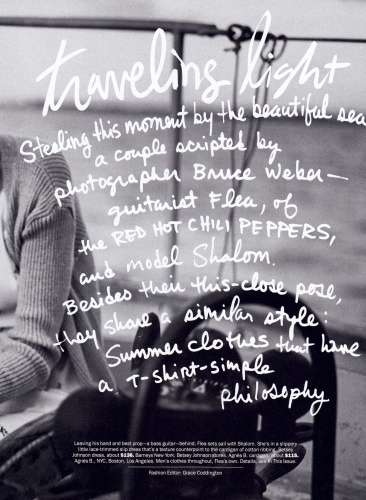 traveling light
Stealing this moment by the beautiful sea
a couple scripted by
photographer Bruce Weber—
guitarist Flea, of
the RED HOT CHILI PEPPERS,
and model Shalom.
Besides their this-close pose,
they share a similar style:
Summer clothes that have
a T-shirt-simple
philosophy
Leaving his band and best prop—a bass guitar—behind, Flea sets sail with Shalom. She's in a slippery
little lace-trimmed slip dress that's a texture counterpoint to the cardigan of cotton ribbing. Betsey
Johnson dress, about $136. Barneys New York; Betsey Johnson stores. Agnès B. cardigan, about $115.
Agnès B., NYC, Boston, Los Angeles. Men's clothes throughout, Flea's own. Details, see In This Issue.
Fashion Editor: Grace Coddington